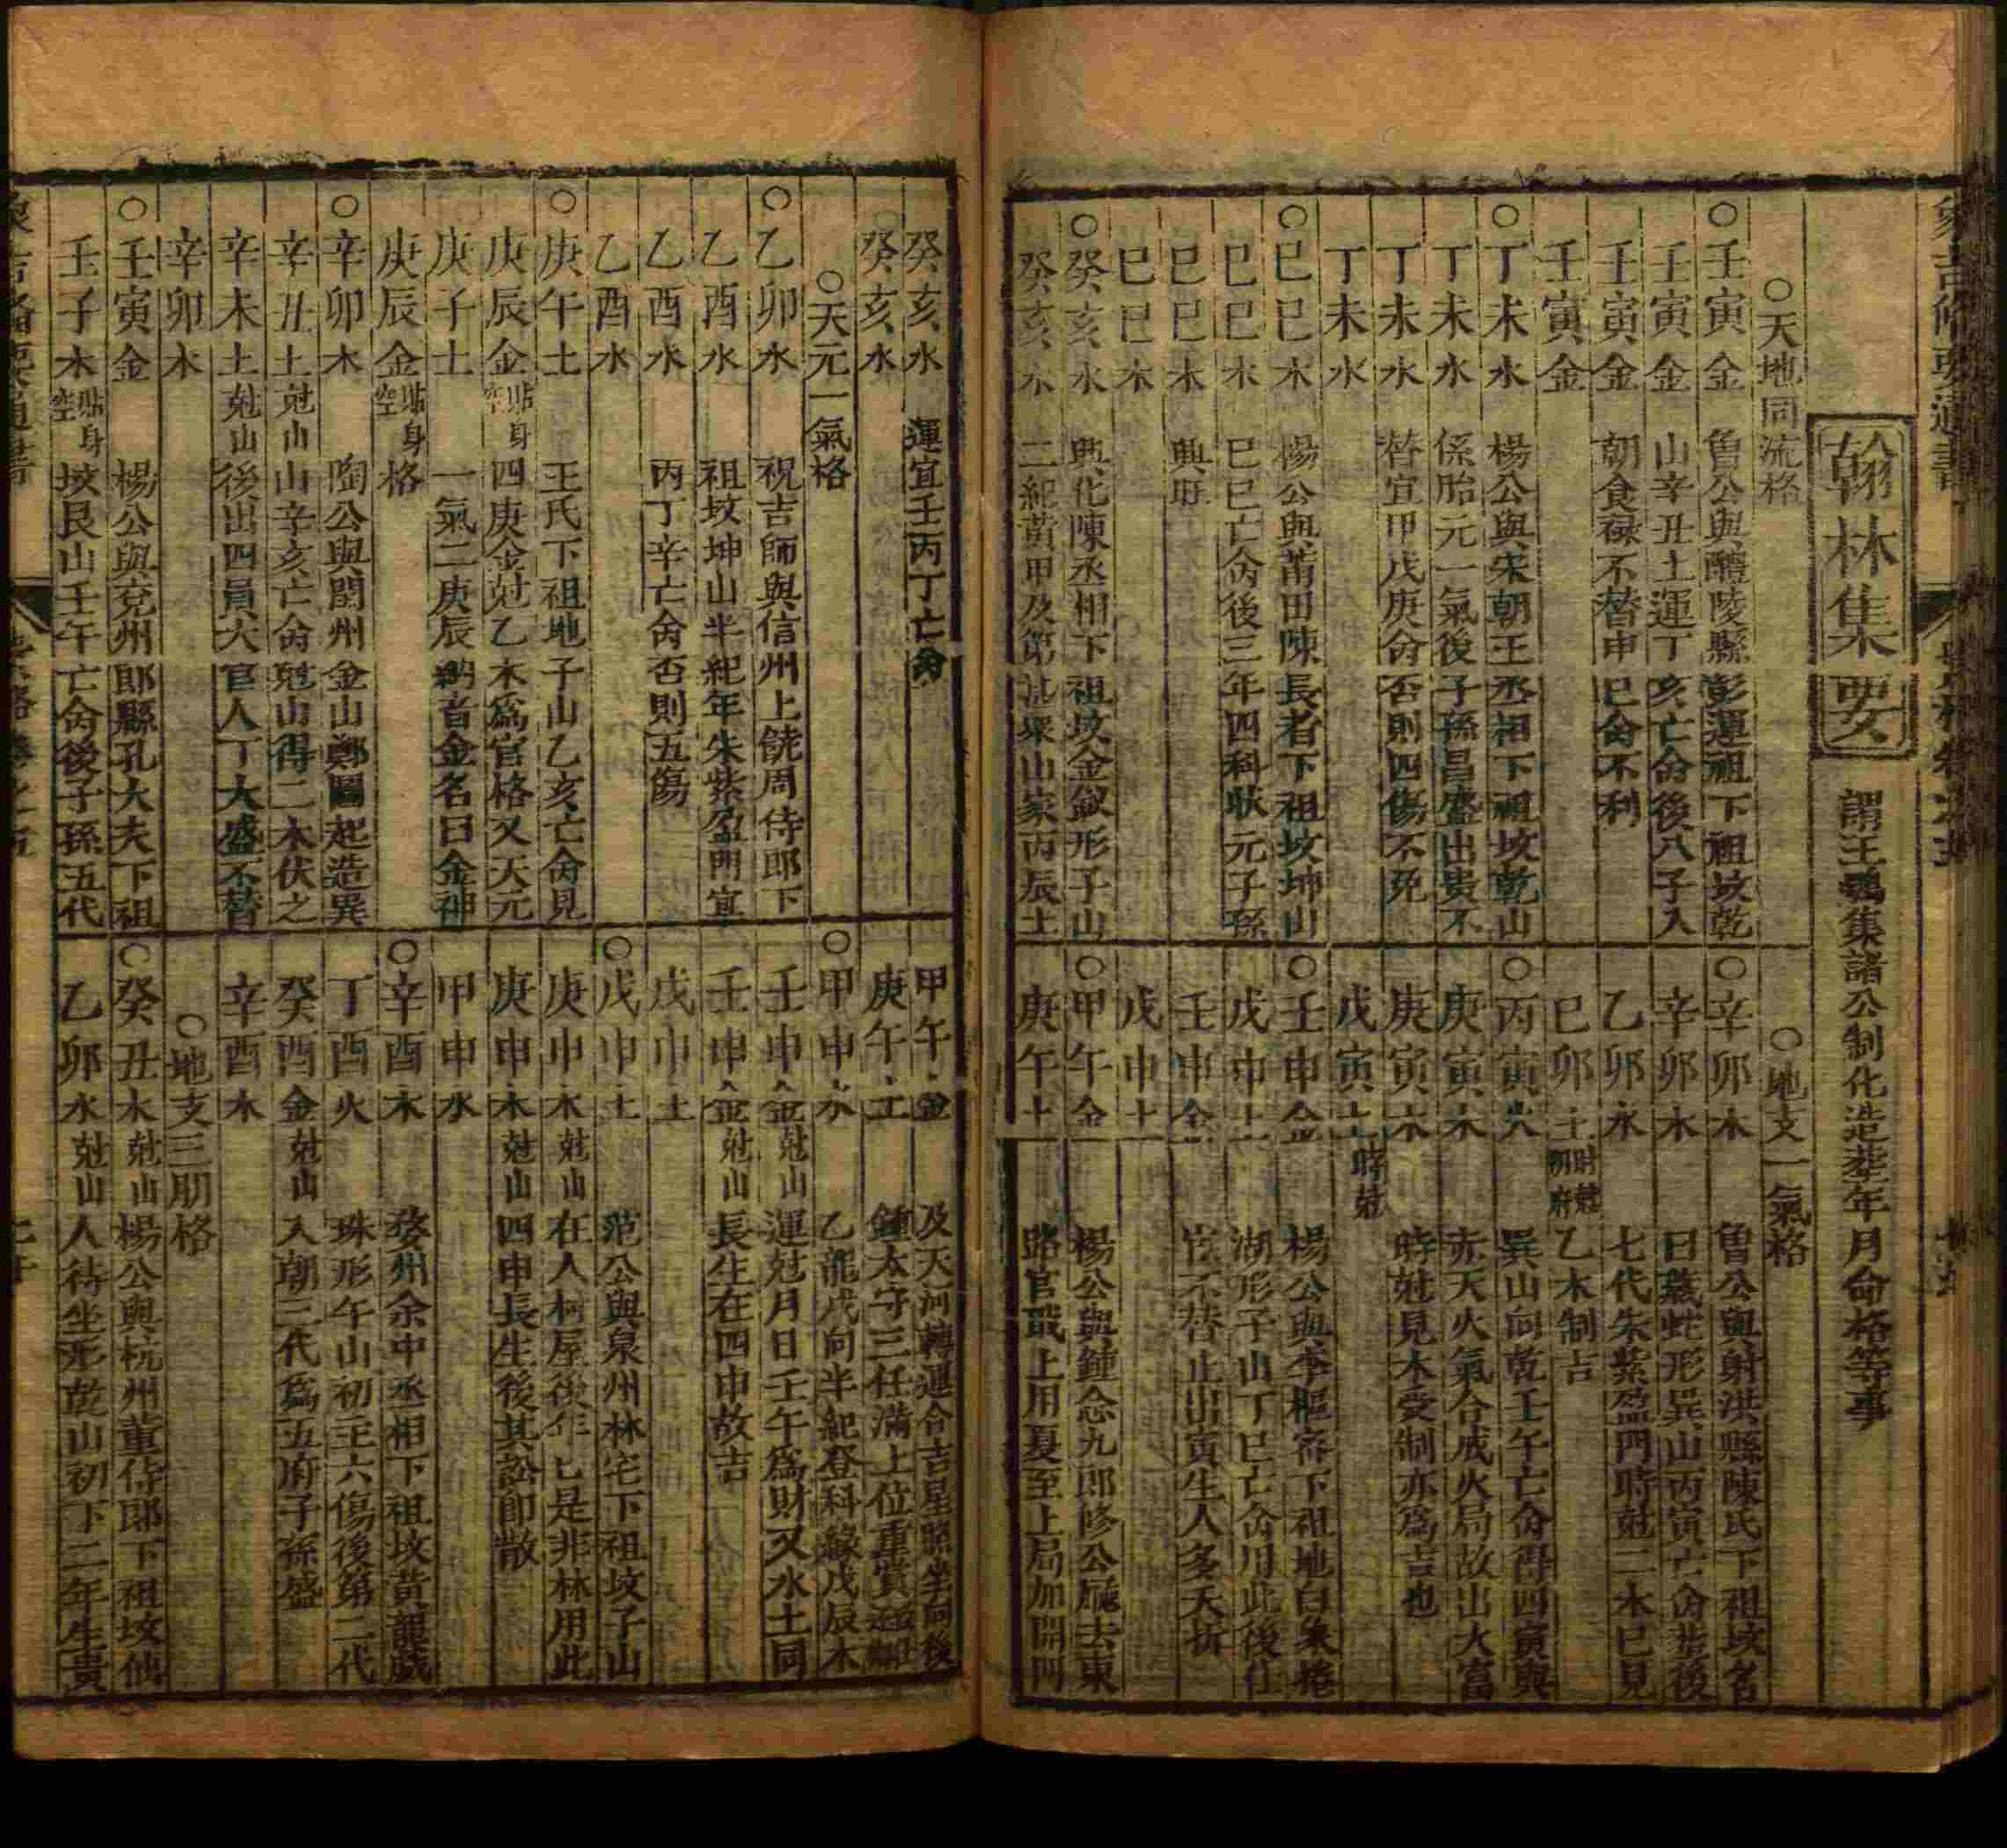 翰林集要
謂王鶚集諸公制化造葬年月命格等事
○天地同流格
○壬寅金 魯公與醴陵縣彭運祖下祖坟乾
壬寅金 山辛丑土運丁亥亡命後八子入
壬寅金 朝食祿不替申巳命不利
壬寅金
○丁未水 楊公與宋朝王丞相下祖坟乾山
丁未水 係胎元一氣後子孫昌盛出貴不
丁未水 替宜甲戊庚命否則四傷不免
丁未水
○己巳木 楊公與莆田陳長者下祖坟坤山
己巳木 己巳亡命後三年四科狀元子孫
己巳木 興旺
己巳木
○癸亥水 興化陳丞相下祖坟金釵形子山
癸亥水 二紀黃甲及第甚眾山家丙辰土
○地支一氣格
○辛卯木 魯公與射洪縣陳氏下祖坟名
辛卯木 曰蟻蛇形巽山丙寅亡命葬後
乙卯水 七代朱紫盈門時尅二木已見
己卯土 乙木制吉
○丙寅火 巽山向乾壬午亡命得四寅與
庚寅木 亦天火氣合成火局故出大富
庚寅木 時尅見木受制亦為吉也
戊寅土 時尅
○壬申金 楊公與李樞密下祖地白象捲
戊申土 湖形子山丁巳亡命用此後仕
壬申金 宦不替止出寅生人多夭折
戊申土
○甲午金 楊公與鍾念九郎修公廳去東
庚午土 路官職上用夏至上局加開門
癸亥水 運宜壬丙丁亡命
癸亥水
○天元一氣格
○乙卯水 祝吉師與信州上饒周侍郎下
乙酉水 祖坟坤山半紀年朱紫盈門宜
乙酉水 丙丁辛亡命否則五傷
乙酉水
○庚午土 王氏下祖地子山乙亥亡命見
庚辰金 貼身空 四庚金尅乙木為官格又天元
庚子土 一氣二庚辰納音金名曰金神
庚辰金 貼身空 格
○辛卯木 陶公與閬州金山鄭圖起造巽
辛丑土 尅山 山辛亥亡命尅山得二木伏之
辛未土 尅山 後出四員大官人丁大盛不替
辛卯木
○壬寅金 楊公與兗州郎縣孔大夫下祖
壬子木 貼身空 坟艮山壬午亡命後子孫五代
甲午金 及天河轉運合吉星照坐向後
庚午土 鍾太守三任滿上位重賞
○甲申水 乙龍戊向半紀登科緣戊辰木
壬申金 尅山 運尅月日壬午為財又水土同
壬申金 尅山 長生在四申故吉
戊申土
○戊申土 范公與泉州林宅下祖坟子山
庚申木 尅山 在人柯屋後年已是非林用此
庚申木 尅山 四申長生後其訟即散
甲申水
○辛酉木 婺州余中丞相下祖坟黃龍戲
丁酉火 珠形午山初主六傷後第二代
癸酉金 尅山 入朝三代為五府子孫盛
辛酉木
○地支三朋格
○癸丑木 尅山 楊公與杭州董侍郎下祖坟仙
乙卯水 尅山 人待坐形乾山初下二年生貴